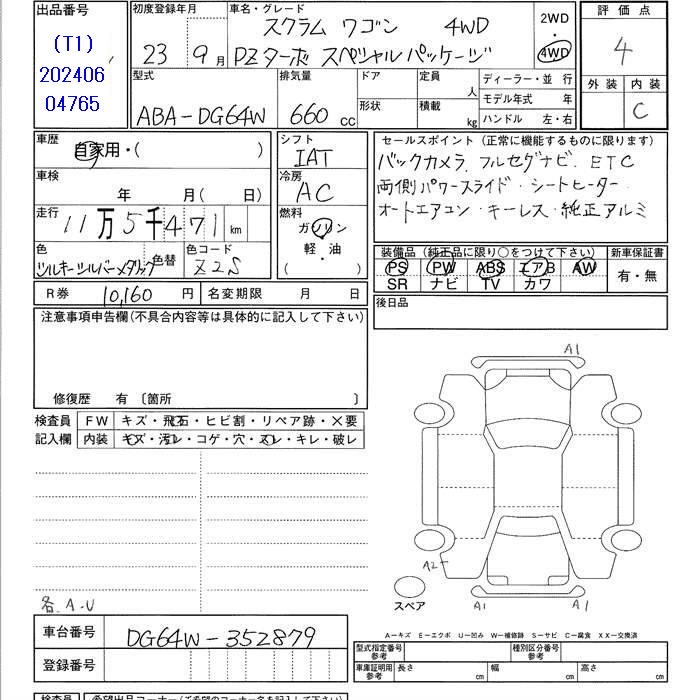 出品番号
(T1)
202406
04765
初度登録年月
23 9月
車名・グレード
スクラム ワゴン 4WD
PZターボ スペシャルパッケージ
2WD
・
4WD
評 価 点
4
外 装 内 装
C
型式
ABA-DG64W
排気量
660 cc
ドア
形状
定員
人
積載
kg
ディーラー・並 行
モデル年式 年
ハンドル 左・右
車歴
自家用・( )
シフト
IAT
車検
年 月( 日)
冷房
AC
走行
11万5千471 km
燃料
ガソリン
軽・油
( )
色
シルキーシルバーメタリック
色替
色コード
Z2S
セールスポイント (正常に機能するものに限ります)
バックカメラ フルセグナビ. ETC
両側パワースライド・シートヒーター
オートエアコン・キーレス・純正アルミ
装備品 (純正品に限り○をつけて下さい)
PS PW ABS エアB AW
SR ナビ TV カワ
新車保証書
有・無
R券 10,160 円
名変期限 月 日
後日品
注意事項申告欄(不具合内容等は具体的に記入して下さい)
修復歴 有 〔箇所 〕
検査員
記入欄
FW キズ・飛石・ヒビ割・リペア跡・×要
内装 キズ・汚レ・コゲ・穴・スレ・キレ・破レ
A1
A2
A1
A1
スペア
各.A.U
車台番号
DG64W-352879
登録番号
A-キズ E-エクボ U-凹み W-補修跡 S-サビ C-腐食 XX-交換済
型式指定番号
参考
種別区分番号
参考
車庫証明用
参考
長さ cm
幅 cm
高さ cm
検査員
希望出品コーナー(ご希望のコーナー名を記入下さい)